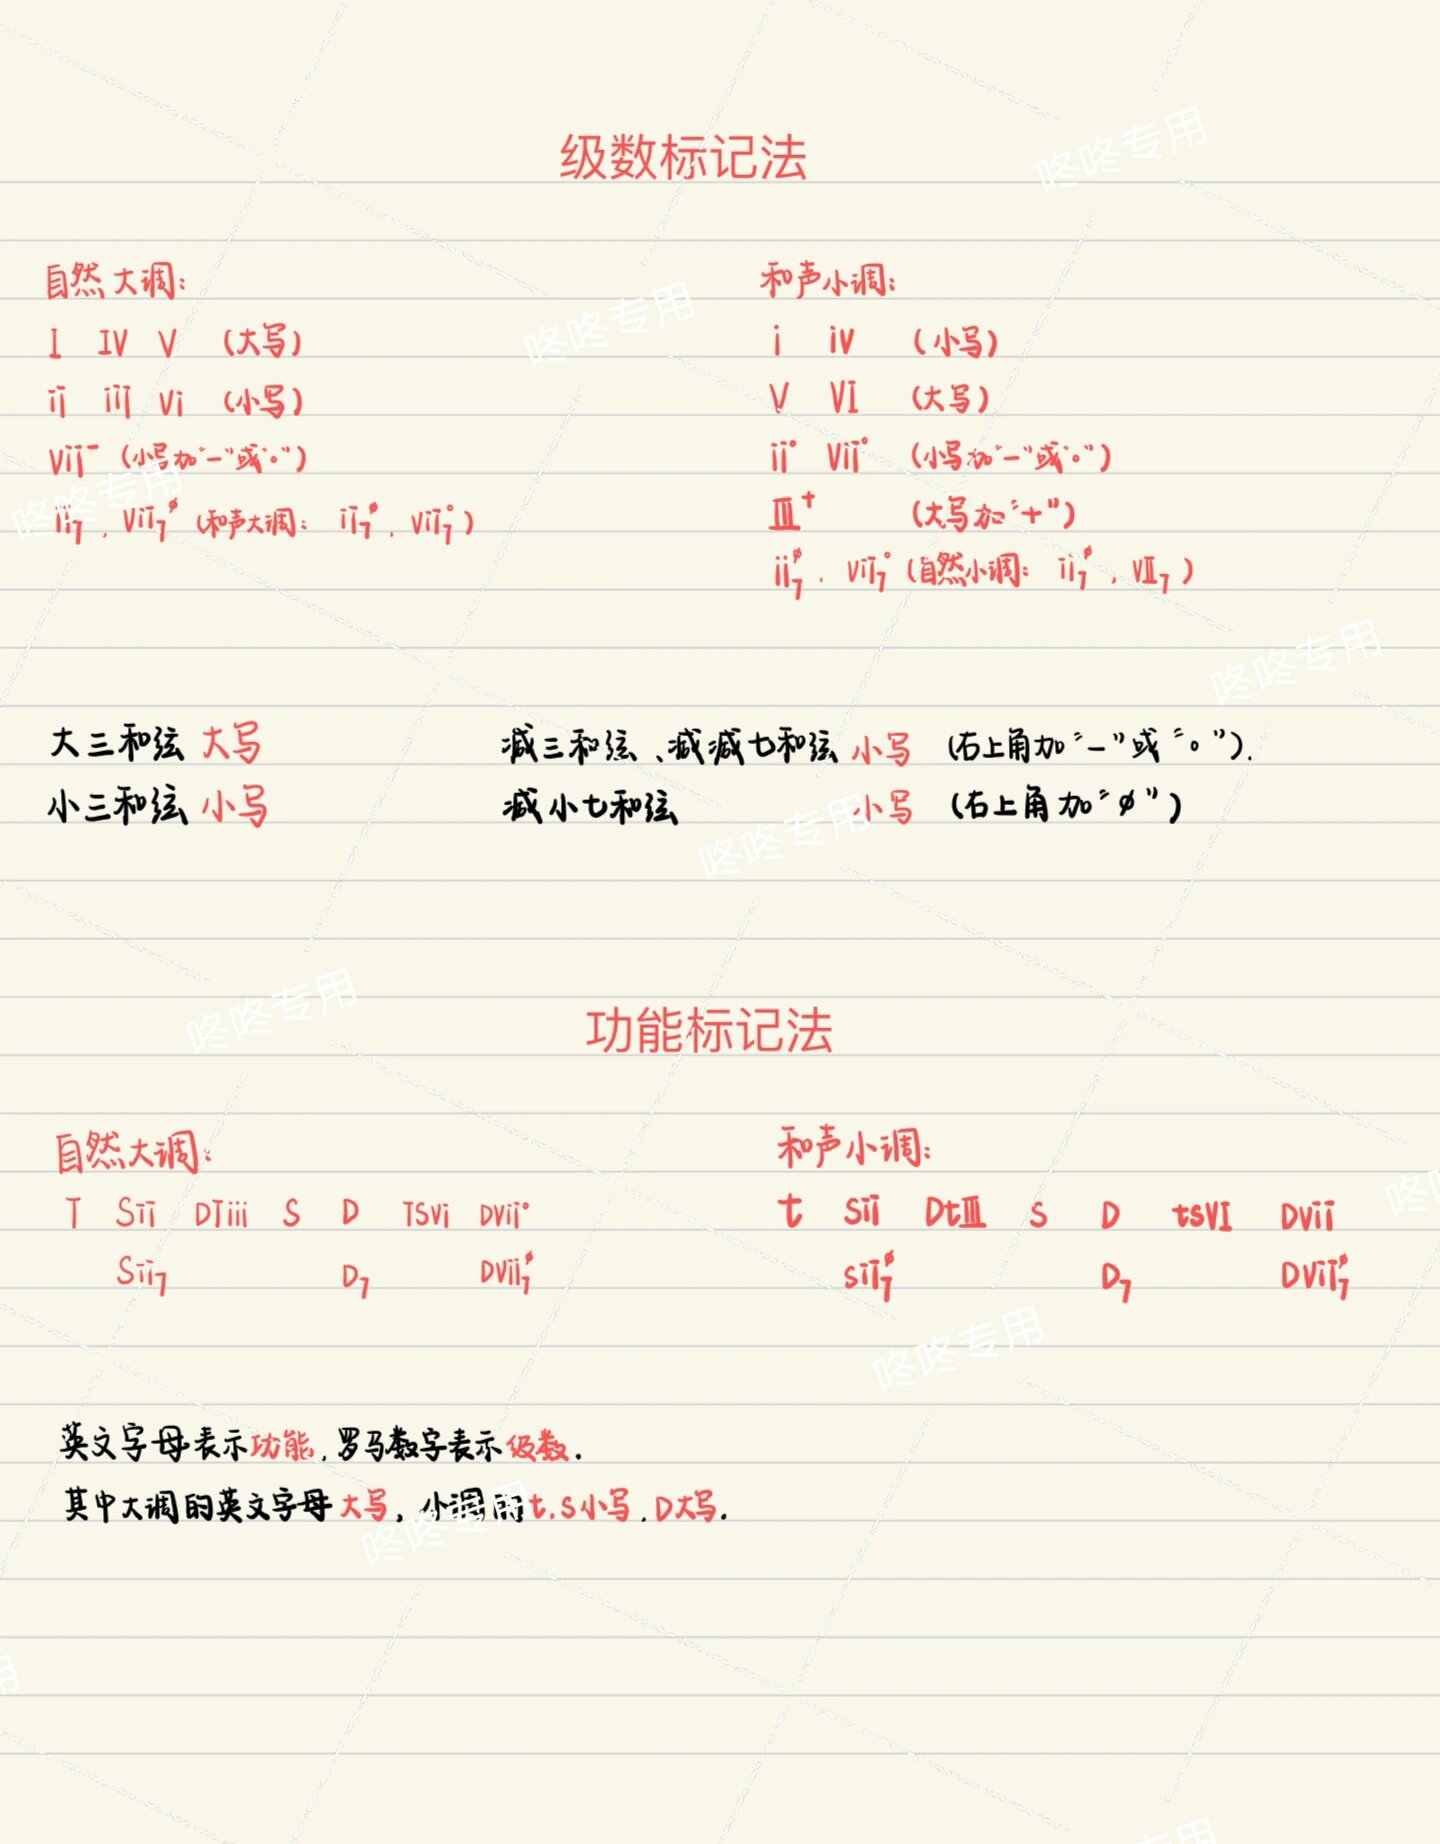 级数标记法
自然大调:
I IV V (大写)
ii iii vi (小写)
vii⁻ (小写加"−"或"°")
ii₇, vii₇ᶲ (和声大调: ii₇ᶲ, vii₇°)
和声小调:
i iv (小写)
V VI (大写)
ii° vii° (小写加"−"或"°")
III⁺ (大写加"+")
ii₇ᶲ, vii₇° (自然小调: ii₇ᶲ, VII₇)
大三和弦 大写
小三和弦 小写
减三和弦、减减七和弦 小写 (右上角加"−"或"°").
减小七和弦 小写 (右上角加"ø")
功能标记法
自然大调:
T Sii DTiii S D TSVi DVii°
Sii₇ D₇ DVii₇ᶲ
和声小调:
t sii DtIII s D tsVI DVii
sii₇ᶲ D₇ DVii₇ᶲ
英文字母表示功能,罗马数字表示级数.
其中大调的英文字母大写,小调的t.s小写,D大写.
咚咚专用
咚咚专用
咚咚专用
咚咚专用
咚咚专用
咚咚专用
咚咚专用
咚咚专用
咚咚专用